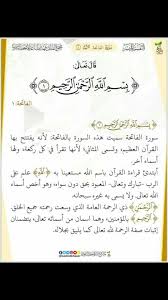 قال تعالى:
﴿بِسْمِ اللَّهِ الرَّحْمَٰنِ الرَّحِيمِ﴾
الفاتحة: ١
بِسْمِ اللَّهِ الرَّحْمَٰنِ الرَّحِيمِ
سورة الفاتحة سميت هذه السورة بالفاتحة؛ لأنه يفتتح بها
القرآن العظيم، وتسمى المثاني؛ لأنها تقرأ في كل ركعة، ولها
أسماء أخر.
أبتدئ قراءة القرآن باسم الله مستعينا به، ﴿اللهِ﴾ علم على
الرب -تبارك وتعالى- المعبود بحق دون سواه، وهو أخص أسماء
الله تعالى، ولا يسمى به غيره سبحانه.
﴿الرَّحْمَنِ﴾ ذي الرحمة العامة الذي وسعت رحمته جميع الخلق،
﴿الرَّحِيمِ﴾ بالمؤمنين، وهما اسمان من أسمائه تعالى، يتضمنان
إثبات صفة الرحمة لله تعالى كما يليق بجلاله.